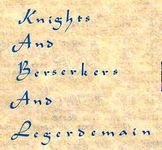 Knights
And
Berserkers
And
Legerdemain